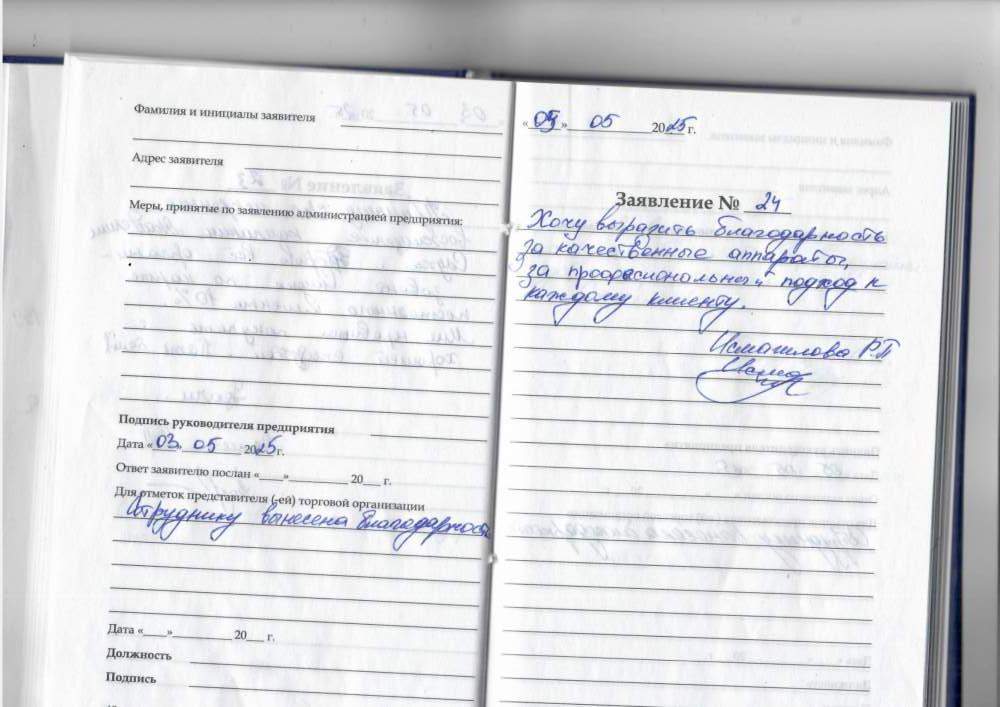 Фамилия и инициалы заявителя
Адрес заявителя
Меры, принятые по заявлению администрацией предприятия:
Подпись руководителя предприятия
Дата «03» 05 2025 г.
Ответ заявителю послан «____»__________ 20___ г.
Для отметок представителя (-ей) торговой организации
Сотруднику вынесена благодарность
Дата «____»__________ 20___ г.
Должность
Подпись
« » 05 2025 г.
Заявление № 24
Хочу выразить благодарность
за качественные аппараты,
за професиональный подход к
каждому клиенту.
Исмагилова Р.П